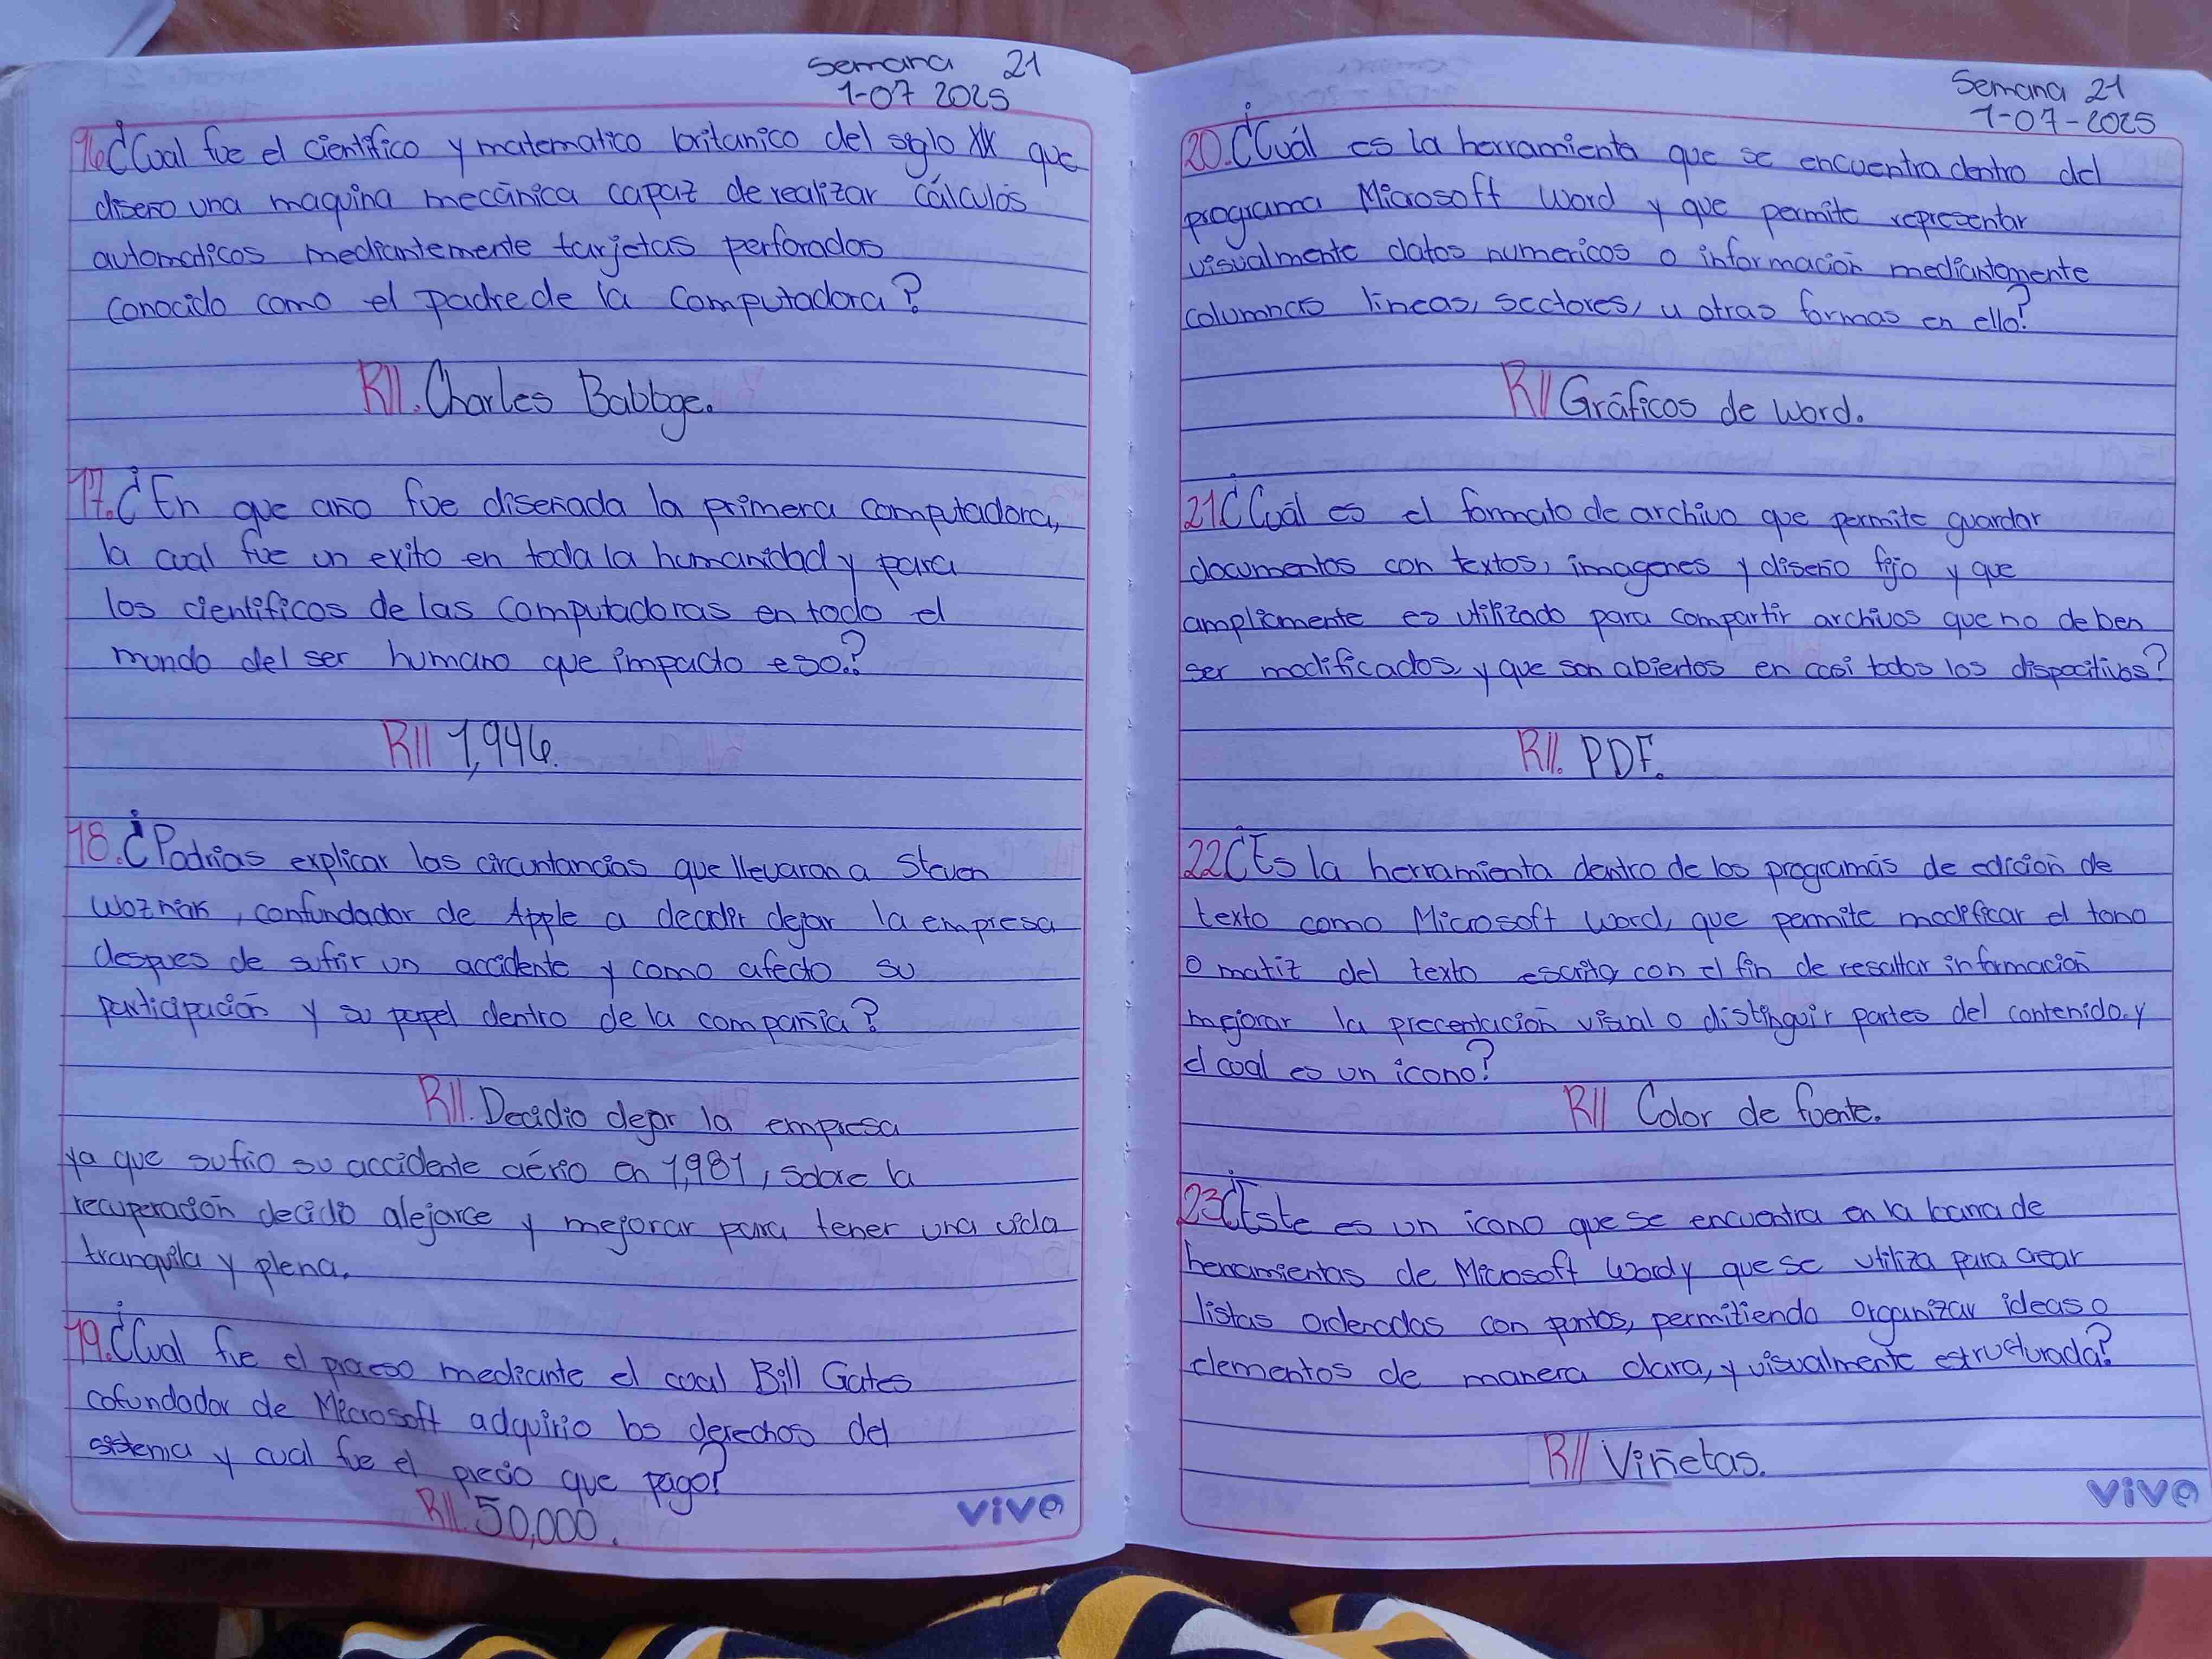 Semana 21
1-07 2025
16. ¿Cual fue el científico y matematico britanico del siglo XIX que
diseño una maquina mecánica capaz de realizar cálculos
automaticos mediantemente tarjetas perforadas
conocido como el padre de la computadora?
R//. Charles Babbge.
17. ¿En que año fue diseñada la primera computadora,
la cual fue un exito en toda la humanidad y para
los cientificos de las computadoras en todo el
mundo del ser humano que impacto eso.?
R// 1,946.
18. ¿Podrias explicar las circuntancias que llevaron a Steven
Wozniak, confundador de Apple a decidir dejar la empresa
despues de sufrir un accidente y como afecto su
participación y su papel dentro de la compañia?
R//. Decidio dejar la empresa
ya que sufrio su accidente aério en 1,981, sobre la
recuperación decidio alejarce y mejorar para tener una vida
tranquila y plena.
19. ¿Cual fue el proceso mediante el cual Bill Gates
cofundador de Microsoft adquirio los derechos del
sistema y cual fue el precio que pago?
R//. 50,000.
vive
Semana 21
1-07-2025
20. ¿Cuál es la herramienta que se encuentra dentro del
programa Microsoft Word y que permite representar
visualmente datos numericos o información mediantemente
columnas lineas, sectores, u otras formas en ello?
R// Gráficos de Word.
21 ¿Cuál es el formato de archivo que permite guardar
documentos con textos, imagenes y diseño fijo y que
ampliamente es utilizado para compartir archivos que no deben
ser modificados, y que son abiertos en casi todos los dispocitivos?
R//. PDF.
22 ¿Es la herramienta dentro de los programas de edicion de
texto como Microsoft Word, que permite modificar el tono
o matiz del texto escrito, con el fin de resaltar informacion
mejorar la precentación visual o distinguir partes del contenido. y
el cual es un icono?
R// Color de fuente.
23 ¿Este es un icono que se encuentra en la barra de
herramientas de Microsoft Word y que se utiliza para crear
listas ordenadas con puntos, permitiendo organizar ideas o
elementos de manera clara, y visualmente estructurada?
R// Viñetas.
vive